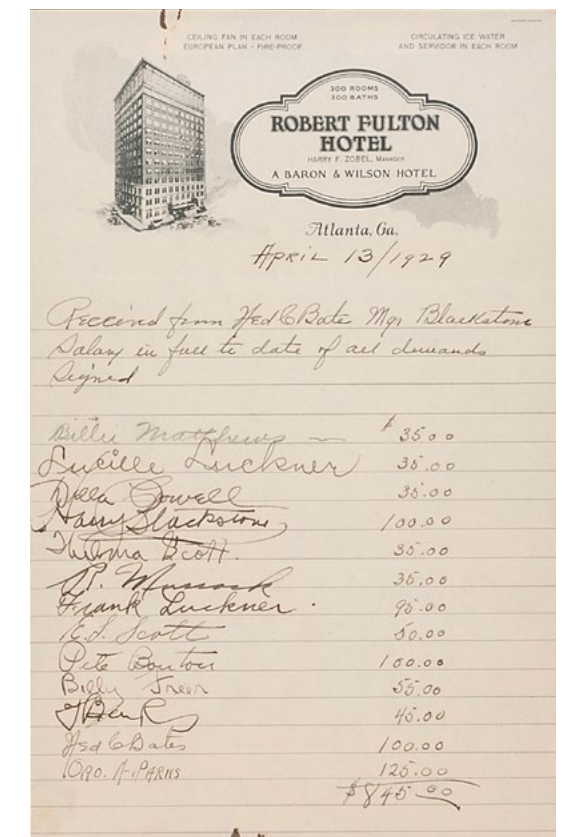 CEILING FAN IN EACH ROOM
EUROPEAN PLAN - FIRE-PROOF
CIRCULATING ICE WATER
AND SERVIDOR IN EACH ROOM
300 ROOMS
300 BATHS
ROBERT FULTON
HOTEL
HARRY F. ZOBEL, MANAGER
A BARON & WILSON HOTEL
Atlanta, Ga.
APRIL 13/1929
Received from Fred C Bate Mgr Blackstone
Salary in full to date of all demands
Signed
Billie Matthews — $ 35 00
Lucille Luckner 35.00
Della Powell 35.00
Harry Blackstone 100.00
Thelma Scott. 35.00
35.00
Frank Luckner. 95.00
E.S. Scott 50.00
Pete Bouton 100.00
Billy Freer 55.00
45.00
Fred C Bates 100.00
125.00
$845 00